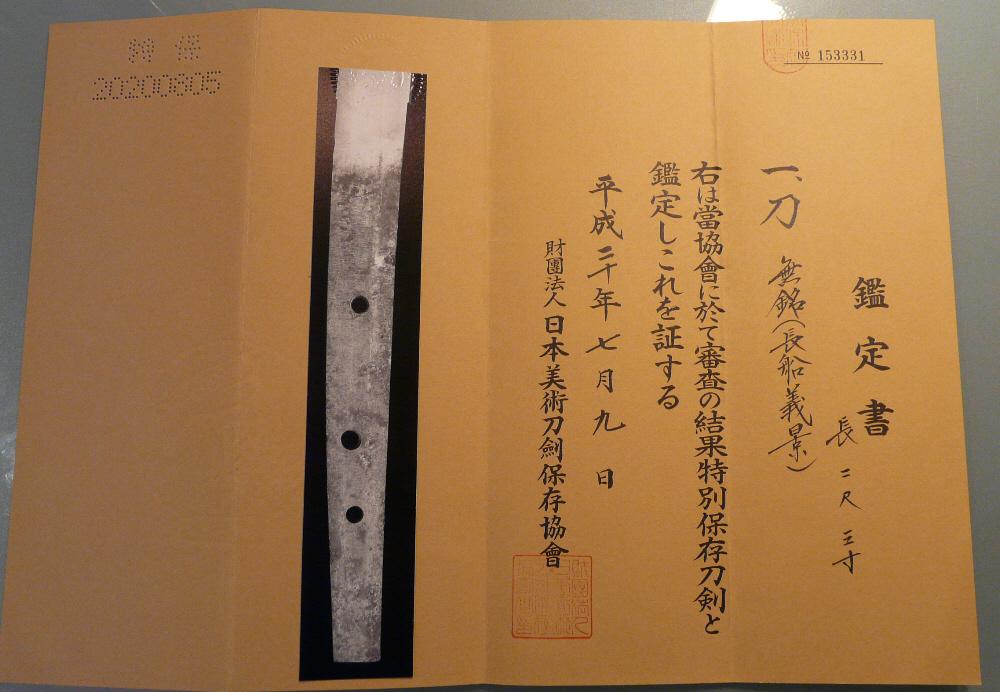 № 153331
鑑定書
長 二尺 三寸
一、刀 無銘(長船義景)
右は當協會に於て審査の結果特別保存刀剣と
鑑定しこれを証する
平成二十年七月九日
財團法人 日本美術刀劍保存協會
特保
20200805